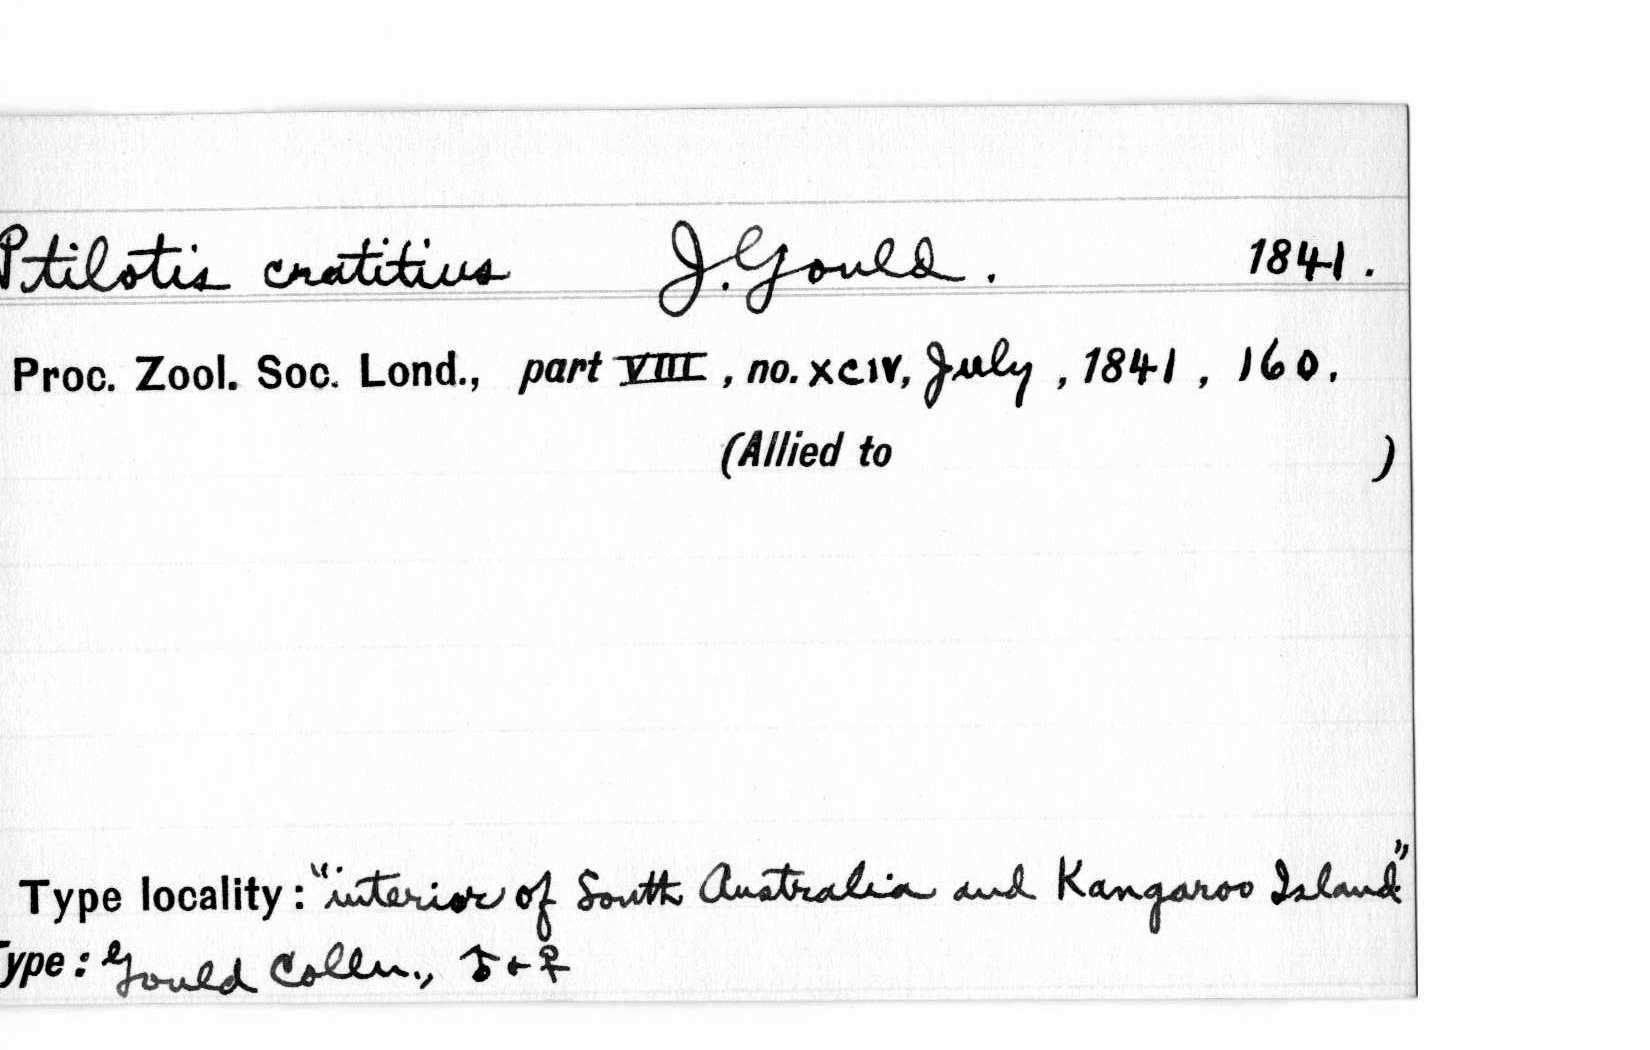 Ptilotis cratitius J. Gould. 1841.
Proc. Zool. Soc. Lond., part VIII, no. XCIV, July, 1841, 160.
(Allied to )
Type locality: "interior of South Australia and Kangaroo Island"
Type: Gould Colln., ♂ + ♀